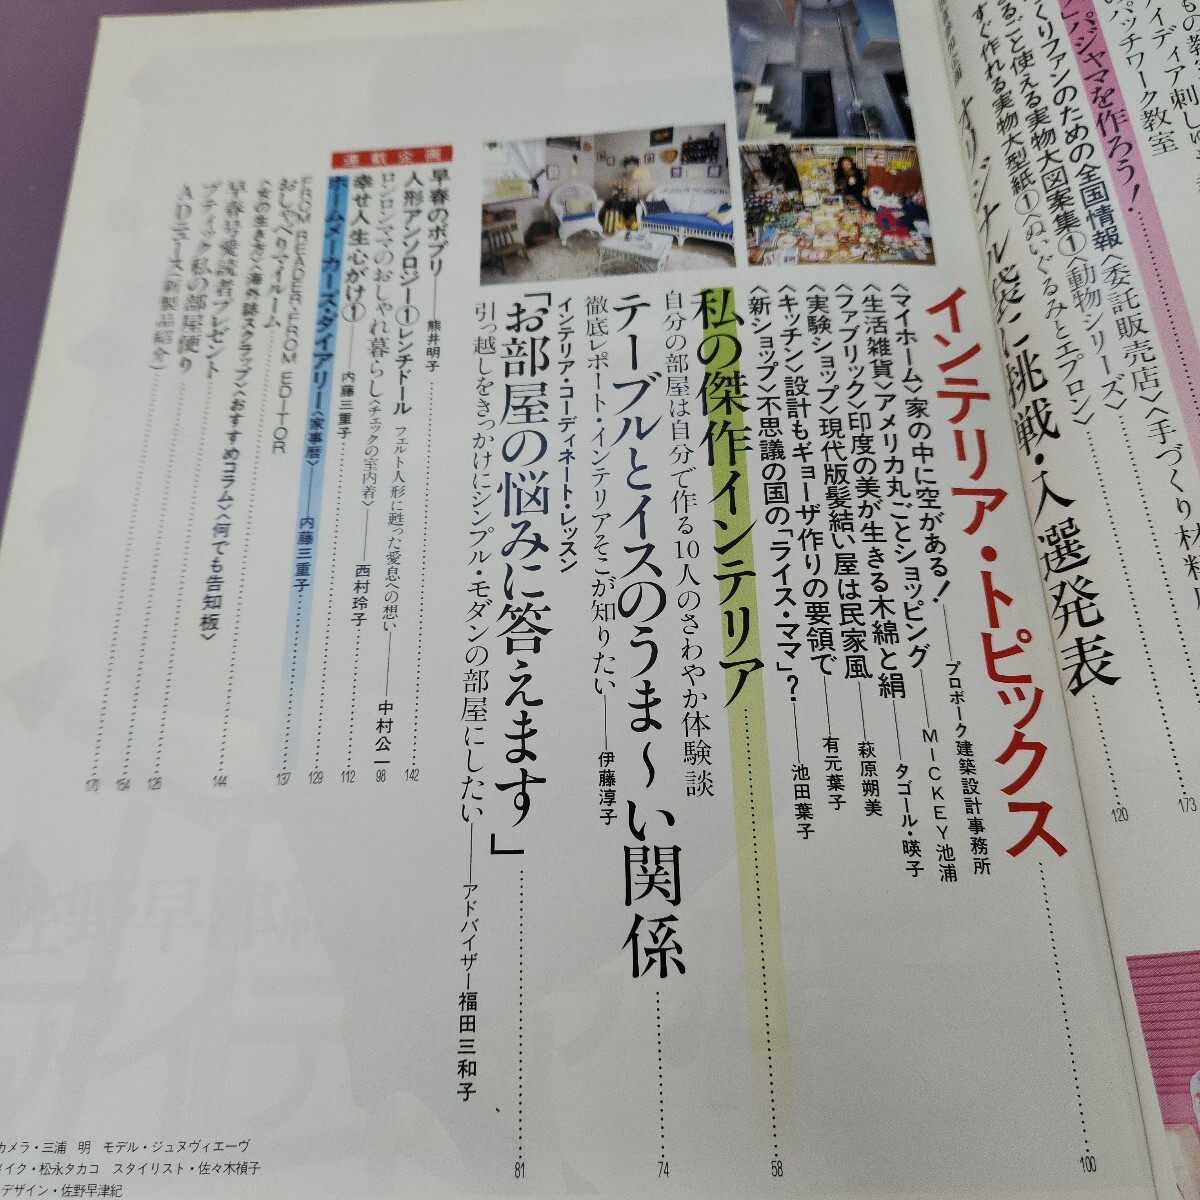 もの教室
イディア刺し
のパッチワーク教室
パジャマを作ろう!
くりファンのための全国情報〈委託販売店〉〈手づくり材料
るごと使える実物大図案集①〈動物シリーズ〉
すぐ作れる実物大型紙①〈ぬいぐるみとエプロン〉
オリジナル袋に挑戦・入選発表
173
120
インテリア・トピックス
100
〈マイホーム〉家の中に空がある!――プロボーク建築設計事務所
〈生活雑貨〉アメリカ丸ごとショッピング――MICKEY池浦
〈ファブリック〉印度の美が生きる木綿と絹――タゴール・暎子
〈実験ショップ〉現代版髪結い屋は民家風――萩原朔美
〈キッチン〉設計もギョーザ作りの要領で――有元葉子
〈新ショップ〉不思議の国の「ライス・ママ」?――池田葉子
私の傑作インテリア
58
自分の部屋は自分で作る10人のさわやか体験談
テーブルとイスのうま〜い関係
74
徹底レポート・インテリアそこが知りたい――伊藤淳子
インテリア・コーディネート・レッスン
「お部屋の悩みに答えます」
81
引っ越しをきっかけにシンプル・モダンの部屋にしたい――アドバイザー福田三和子
連載企画
早春のポプリ――熊井明子
142
人形アンソロジー①レンチドール フェルト人形に甦った愛息への想い――中村公一
98
ロンロンママのおしゃれ暮らし〈チェックの室内着〉――西村玲子
112
幸せ人生心がけ①――内藤三重子
129
ホームメーカーズ・ダイアリー〈家事暦〉――内藤三重子
137
FROM READER・FROM EDITOR
おしゃべりマイルーム
〈女の生き方〉〈海外誌スクラップ〉〈おすすめコラム〉〈何でも告知板〉
144
早春号愛読者プレゼント
126
ブティック私の部屋便り
154
ADニュース(新製品紹介)
170
カメラ・三浦 明 モデル・ジュヌヴィエーヴ
メイク・松永タカコ スタイリスト・佐々木禎子
デザイン・佐野早津紀